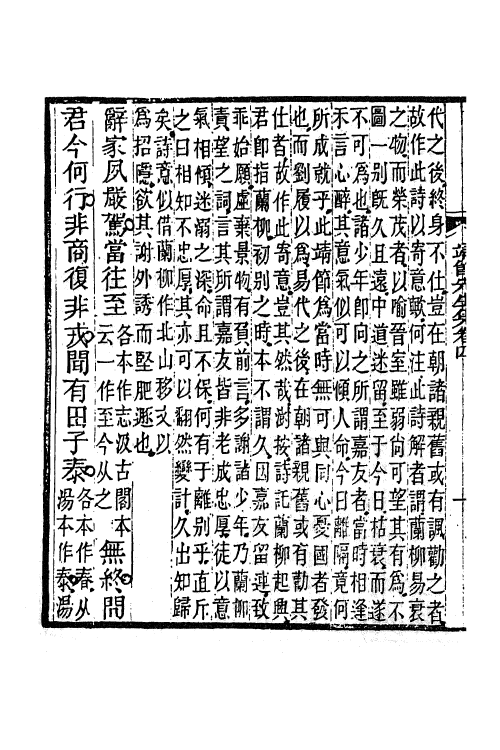 靖節先生集卷四 一
代之後終身不仕豈在朝諸親舊或有諷勸之者
故作此詩以寄意歟何注此詩解者謂蘭柳易衰
之物而榮茂者以喻晉室雖弱尚可望其有爲不
圖一別旣久且遠中道迷留至于今日枯衰而遂
不可爲也諸少年卽向之所謂嘉友者當時相逢
未言心醉其意氣似可以傾人命今日離隔竟何
所成就乎此靖節爲當時無可與同心憂國者發
也而劉履以爲易代之後在朝諸親舊或有勸其
仕者故作此寄意豈其然哉澍按詩託蘭柳起興
君卽指蘭柳初別之時本不謂久因嘉友留連致
乖始願虛棄景物有負前言多謝諸少年乃蘭柳
責望之詞言其所謂嘉友皆非老成忠厚徒以意
氣相傾迷溺之深命且不保何有于離別乎直斥
之曰相知不忠厚其亦可以翻然變計久出知歸
矣詩意似借蘭柳作北山移文以
爲招隱欲其謝外誘而堅肥遯也
辭家夙嚴駕當往至各本作志汲古閣本云一作至今从之無終問
君今何行非商復非戎聞有田子泰各本作春从湯本作泰湯